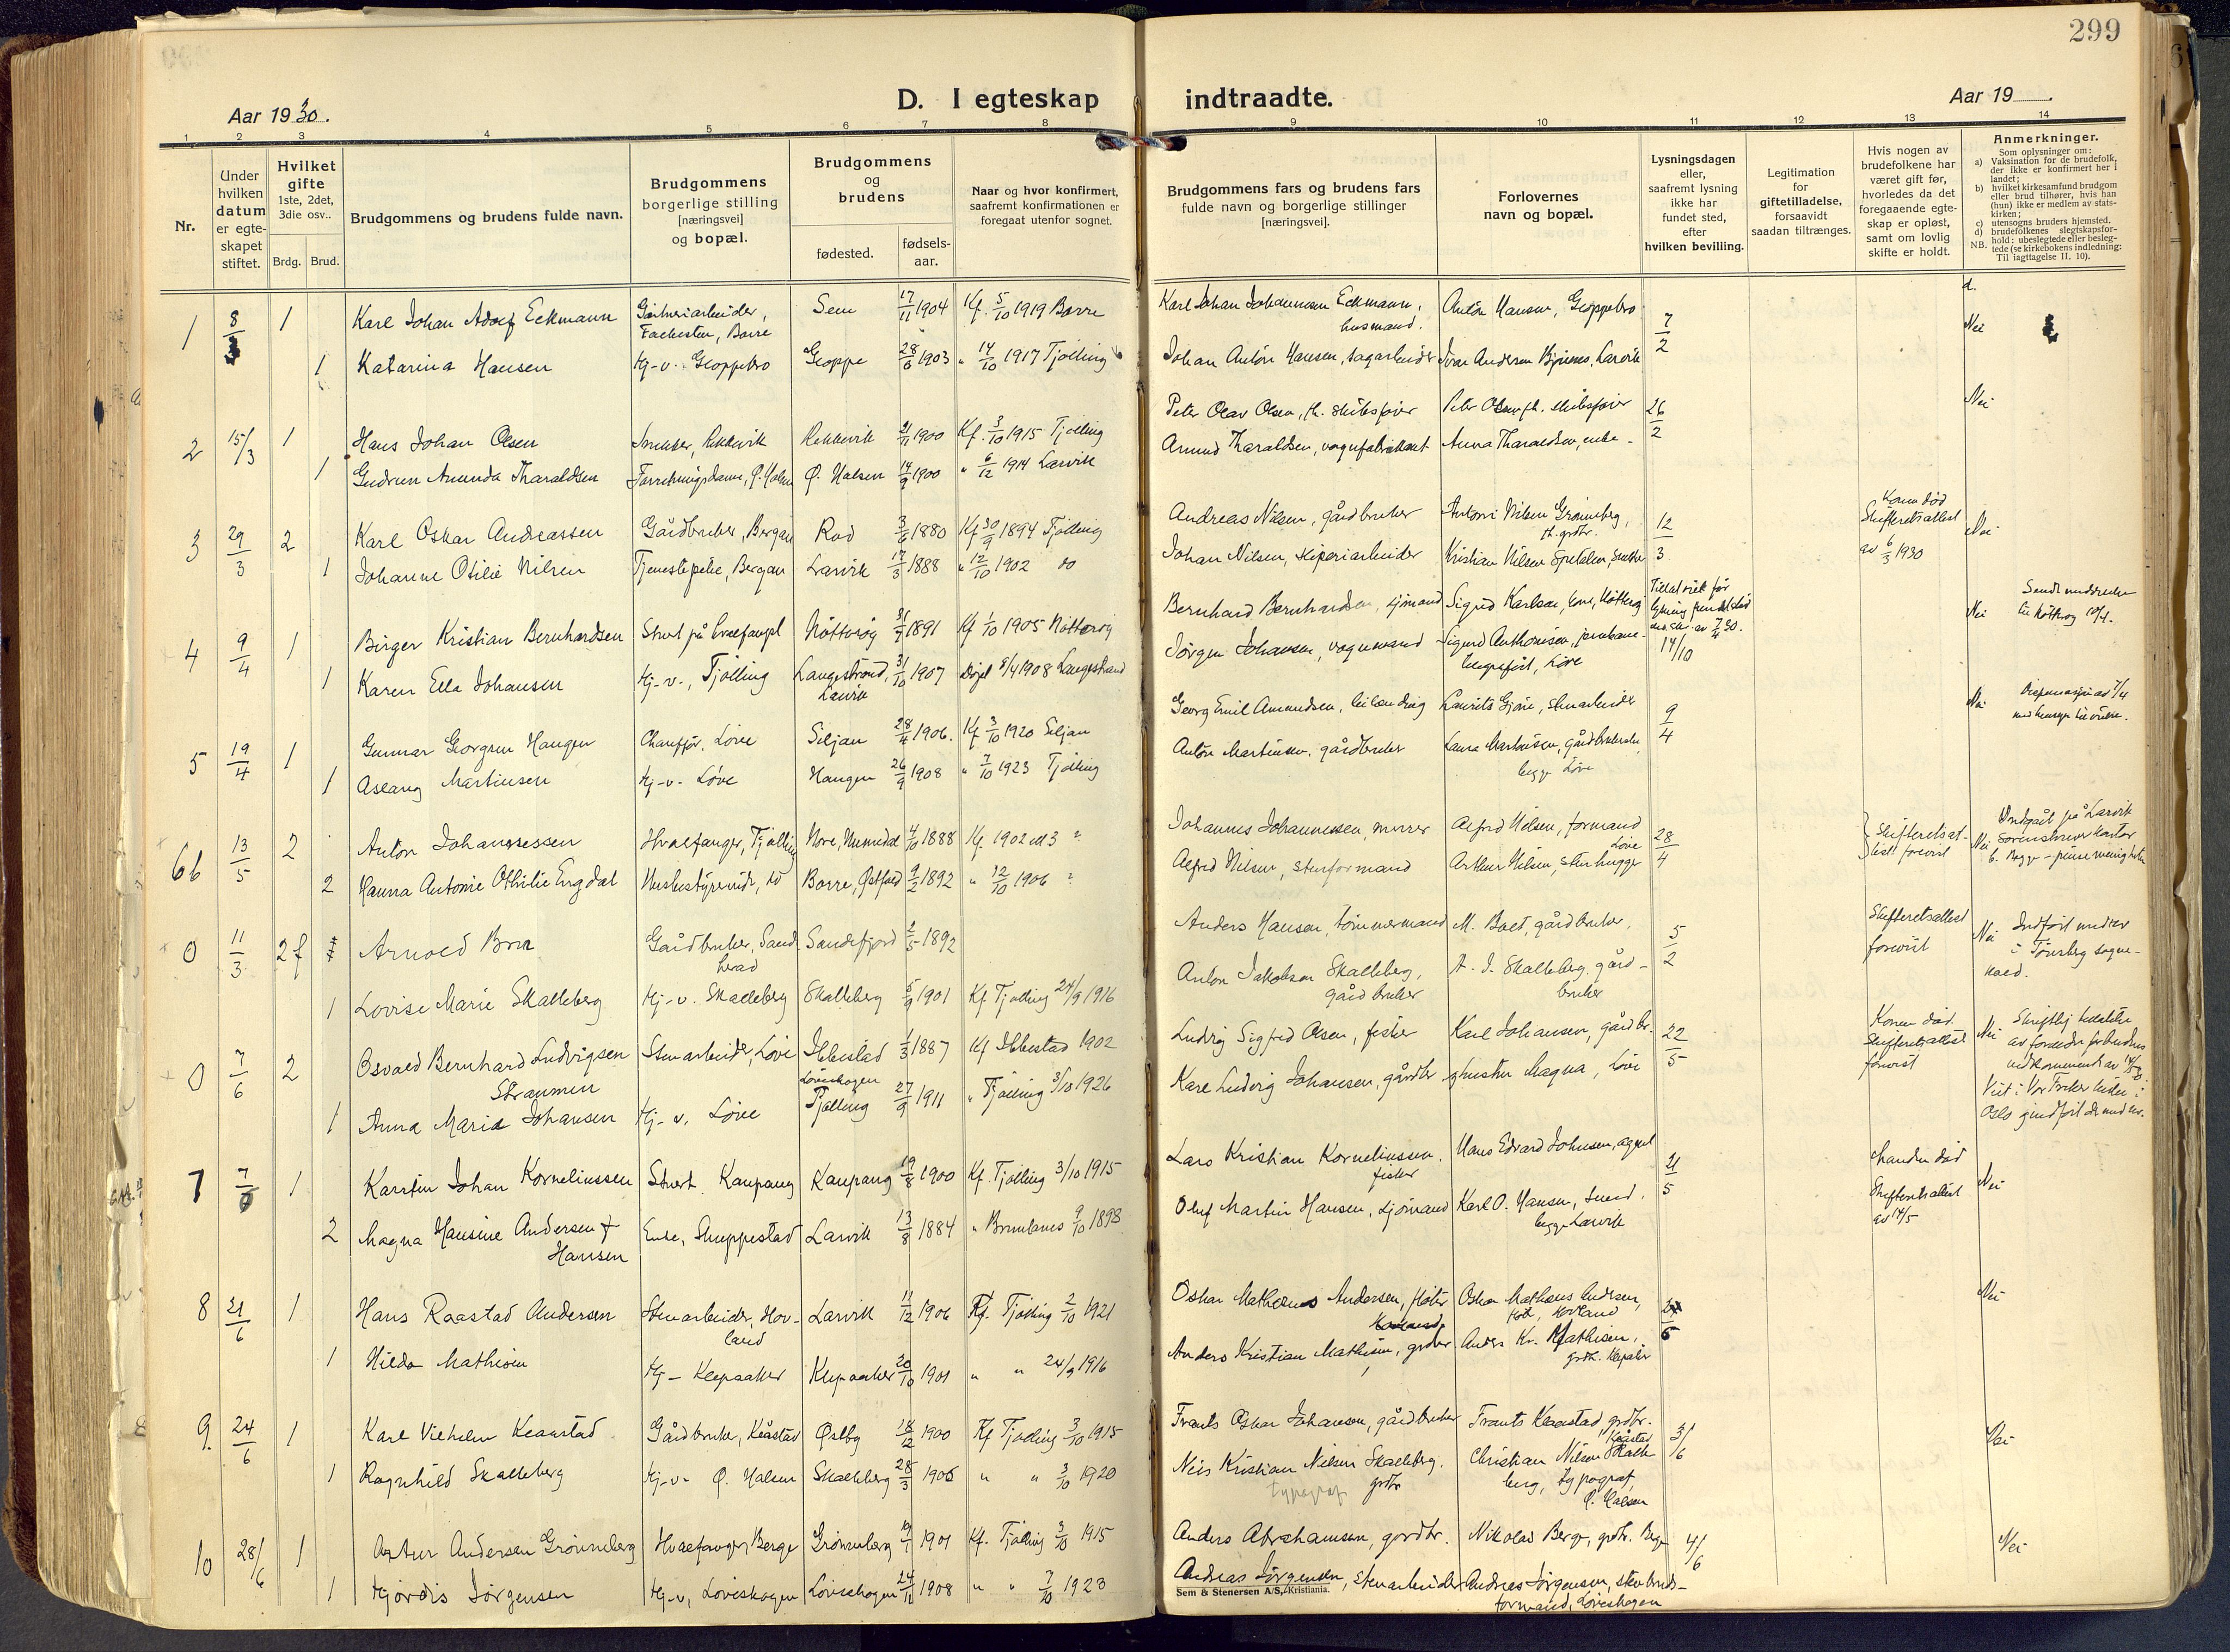 299
Aar 1930.
D. I egteskap indtraadte.
Aar 19
1 2 3 4 5 6 7 8 9 10 11 12 13 14
Nr.
Under hvilken datum er egteskapet stiftet.
Hvilket gifte 1ste, 2det, 3die osv..
Brdg. Brud.
Brudgommens og brudens fulde navn.
Brudgommens borgerlige stilling [næringsvei] og bopæl.
Brudgommens og brudens
fødested.
fødselsaar.
Naar og hvor konfirmert, saafremt konfirmationen er foregaat utenfor sognet.
Brudgommens fars og brudens fars fulde navn og borgerlige stillinger [næringsvei].
Forlovernes navn og bopæl.
Lysningsdagen eller, saafremt lysning ikke har fundet sted, efter hvilken bevilling.
Legitimation for giftetilladelse, forsaavidt saadan tiltrænges.
Hvis nogen av brudefolkene har været gift før, hvorledes da det foregaaende egteskap er opløst, samt om lovlig skifte er holdt.
Anmerkninger.
Som oplysninger om:
a) Vaksination for de brudefolk, der ikke er konfirmert her i landet;
b) hvilket kirkesamfund brudgom eller brud tilhører, hvis han (hun) ikke er medlem av statskirken;
c) utensogns bruders hjemsted.
d) brudefolkenes slegtskapsforhold: ubeslegtede eller beslegtede (se kirkebokens indledning:
NB. Til iagttagelse II. 10).
d.
1 8/3 1 Karl Johan Adolf Eckmann Gartneriarbeider, Falkesten, Borre Sem 17/11 1904 Kf. 5/10 1919 Borre Karl Johan Johannesen Eckmann, husmand. Anton Hansen, Gloppebro 7/2 Nei
1 Katarina Hansen Hj-v. Gloppebro Gloppe 28/6 1903 " 14/10 1917 Tjølling Johan Anton Hansen, sagarbeider Ivar Andersen Larvik
2 15/3 1 Hans Johan Olsen Snekker, Rekkevik Rekkevik 21/11 1900 Kf. 3/10 1915 Tjølling Peter Olav Olsen, fh. skibsfører Peter Olsen fh. skibsfører 26/2 Nei
1 Gudrun Amunda Tharaldsen Forretningsdame, Ø. Halsen Ø. Halsen 14/9 1900 " 6/12 1914 Larvik Amund Tharaldsen, vognfabrikant Anna Tharaldsen, enke
3 29/3 2 Karl Oskar Andreassen Gårdbruker, Bergan Rød 3/6 1880 Kf 30/9 1894 Tjølling Andreas Nilsen, gårdbruker Antoni Nilsen Grønneberg, fh. grdbr. 12/3 Konen død Skifteretsattest av 6/3 1930 Nei
1 Johanne Otilie Nilsen Tjenestepike, Bergan Larvik 17/3 1888 " 12/10 1902 do Johan Nilsen, reperiarbeider Kristian Nilsen
4 9/4 1 Birger Kristian Bernhardsen Stuert på hvalfangst Nøtterøy 31/7 1891 Kf 1/10 1905 Nøtterøy Bernhard Bernhardsen, sjømand Sigrid Karlsen, Nøtterøy Nei Sendt underretn. til Nøtterøy 10/4.
1 Karen Ella Johansen Hj-v., Tjølling Langestrand, Larvik 31/10 1907 Døpt 5/4 1908 Langestrand Jørgen Johansen, vognmand Sigurd Anthonisen, jernbanetelegrafist, Løve 14/10
5 19/4 1 Gunnar Georgsen Haugen Chauffør, Løve Siljan 28/4 1906. Kf 3/10 1920 Siljan Georg Emil Amundsen, Laurits Gjøne, stenarbeider 9/4 Nei
1 Aslaug Martinsen Hj-v. Løve Haugen 26/9 1908 " 7/10 1923 Tjølling Anton Martinsen, gårdbruker Laura Martinsen, begge Løve
6b 13/5 2 Anton Johannessen Hvalfanger, Tjølling Nore, Numedal 4/10 1888 Kf. 1902 Johannes Johannessen, murer Alfred Nilsen, formand Løve 28/4 Skifteretsattest forevist Nei Indgåt på Larvik Sorenskriverkontor
2 Hanna Antonie Othilie Engdal Husbestyrerinde, do Borre, Østfold 9/2 1892 " 12/10 1906 ? Alfred Nilsen, stenformand Arthur Nilsen, stenhugger
0 11/3 2 f Arnold Bræ Gårdbruker, Sandeherad Sandefjord 2/5 1892 Anders Hansen, tømmermand M. Boet, gårdbruker, 5/2 Skifteretsattest forevist Nei Indført under i Tønsberg sognekald.
1 Lovise Marie Skalleberg Hj-v. Skalleberg Skalleberg 5/9 1901 Kf. Tjølling 24/9 1916 Anton Jakobsen Skalleberg, gårdbruker A. J. Skalleberg, gårdbruker
0 7/6 2 Osvald Bernhard Ludvigsen Straumen Stenarbeider, Løve Ibbestad 1/3 1887 Kf Ibbestad 1902 Ludvig Sigfred Olsen, fisker Karl Johansen, gårdbr. 22/5 Konen død. Skifteretsattest forevist Nei
1 Anna Marie Johansen Hj-v. Løve Løveskogen Tjølling 27/9 1911 " Tjølling 3/10 1926 Karl Ludvig Johansen, gårdbr. hustru Magna, Løve Viet i Vor Frelsers kirke i Oslo
7 7/6 1 Karsten Johan Korneliussen Stuert. Kaupang Kaupang 19/8 1900 Kf. Tjølling 3/10 1915 Lars Kristian Korneliussen. fisker Hans Edvard Johnsen, agent 21/5 Manden død Skifteretsattest av 14/5 Nei
2 Magna Hansine Andersen f Hansen Enke, Skuppestad Larvik 13/8 1884 " Brunlanes 9/10 1898 Oluf Martin Hansen, sjømand Karl O. Hansen, smed, begge Larvik
8 21/6 1 Hans Raastad Andersen Stenarbeider, Hovland Larvik 11/12 1906 Kf. Tjølling 2/10 1921 Oskar Mathæus Andersen, Oskar Mathæus Andersen, Hovland Nei
1 Hilda Mathisen Hj- Klepaaker Klepaaker 20/10 1901 " " 24/9 1916 Anders Kristian Mathisen, grdbr Anders Kr. Mathisen, grdbr. Klepaker
9. 24/6 1 Karl Vilhelm Klaastad Gårdbruker, Klåstad Østby 18/12 1900 Kf Tjølling 3/10 1915 Frants Oskar Johansen, gårdbruker Frants Klaastad, grdbr. Klåstad 3/6 Nei
1 Ragnhild Skalleberg Hj-v- Ø. Halsen Skalleberg 28/3 1906 " " 3/10 1920 Nils Kristian Nilsen Skalleberg. grdbr typograf Christian Nilsen Skalleberg, typograf, Ø. Halsen
10 28/6 1 Artur Andersen Grønneberg Hvalfanger, Berge Grønneberg 19/1 1901 Kf. Tjølling 3/10 1915 Anders Abrahamsen, gårdbr. Nikolai Berge, grdbr. Berge 4/6 Nei
1 Hjørdis Jørgensen Hj-v, Løveskogen Løveskogen 24/11 1908 " " 7/10 1923 Andreas Jørgensen, stenarbeider Andreas Jørgensen, stenbruds-formand, Løveskogen
Sem & Stenersen A/S, Kristiania.